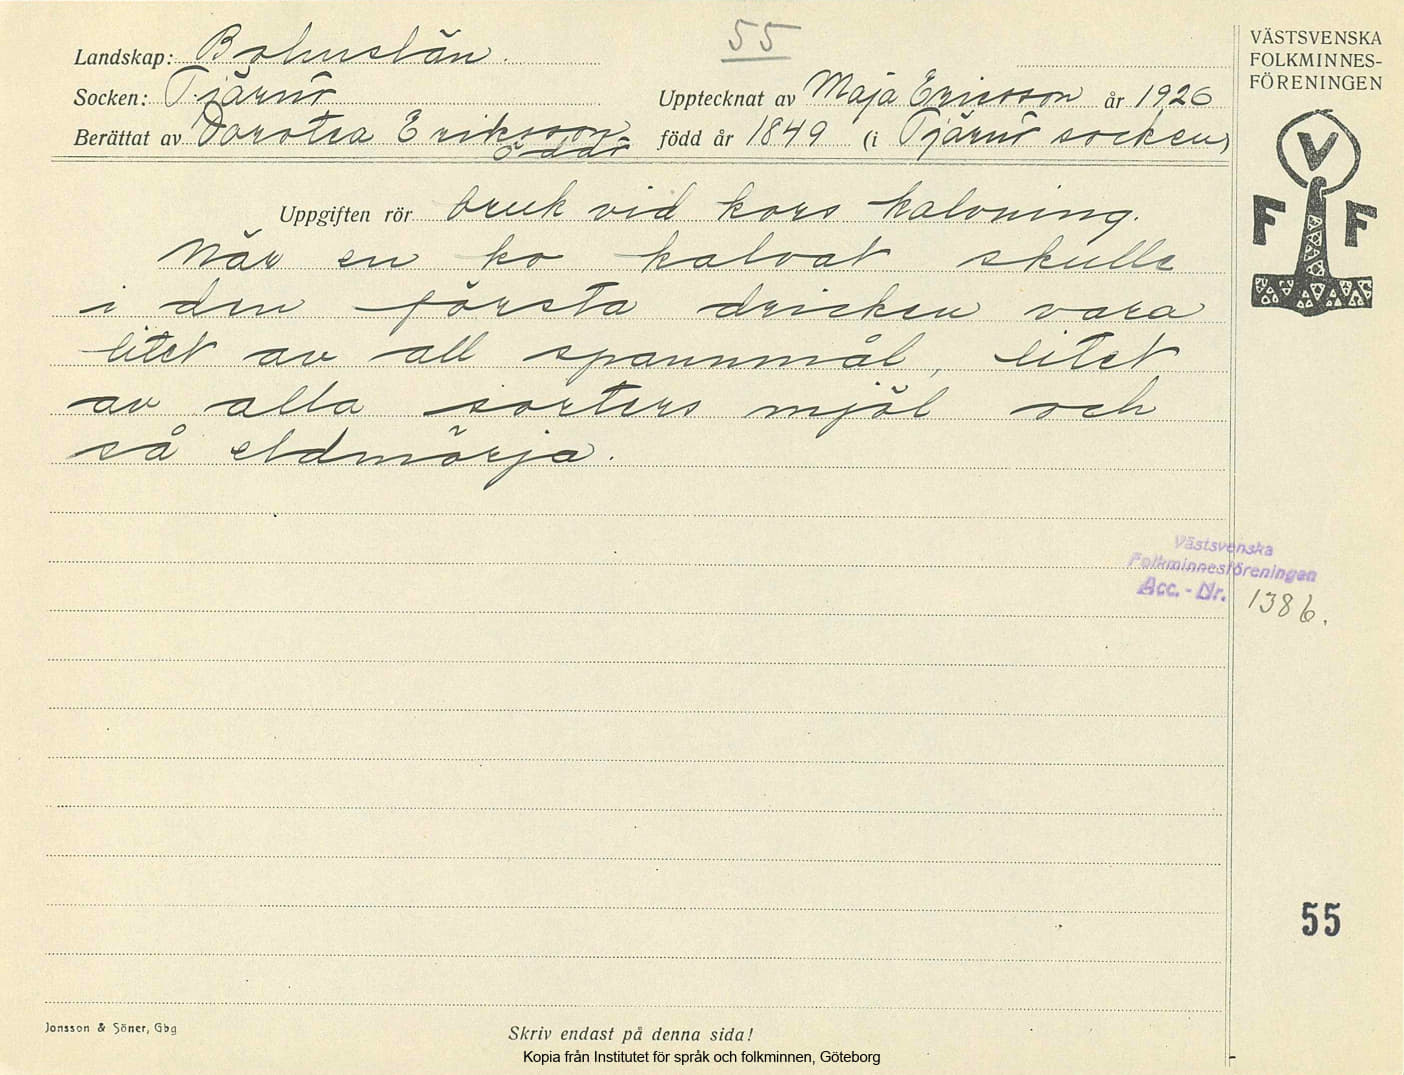 55
Landskap: Bohuslän
Socken: Tjärnö
Upptecknat av Maja Ericsson år 1926
Berättat av Dorotea Eriksson
Öddö
född år 1849 (i Tjärnö socken)
VÄSTSVENSKA
FOLKMINNES-
FÖRENINGEN
V
F F
Uppgiften rör bruk vid kors kalvning.
När en ko kalvat skulle
i den första dricken vara
litet av all spannmål, litet
av alla sorters mjöl och
så eldmörja.
Västsvenska
Folkminnesföreningen
Acc. - Nr. 1386.
55
Jonsson & Söner, Gbg
Skriv endast på denna sida!
Kopia från Institutet för språk och folkminnen, Göteborg